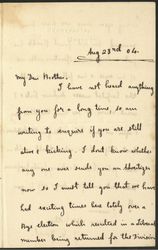 Aug 23rd 04.
My Dear Mother.
I have not heard anything
from you for a long time, so am
writing to enquire if you are still
alive & kicking. I don't know whether
any one ever sends you an Shortage
now so I must tell you that we have
had exciting times here lately over a
Bye election which resulted in a Liberal
member being returned for the Division